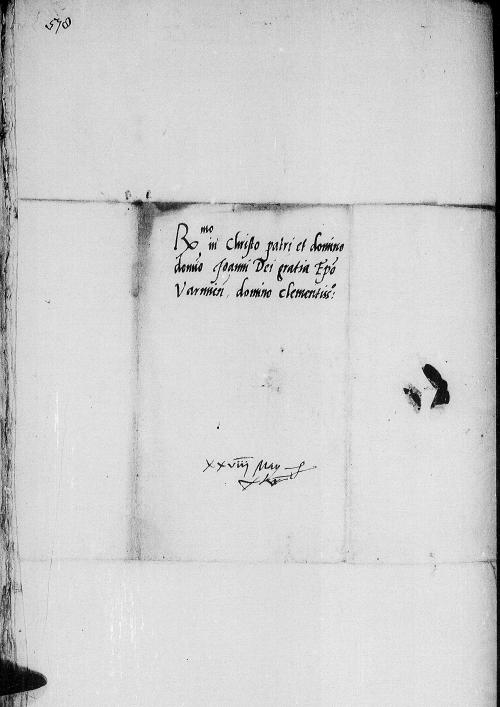 578
R^mo in Christo patri et domino
domno Joanni Dei gratia Epo
Varmien, domino clementiss:
xxviij May